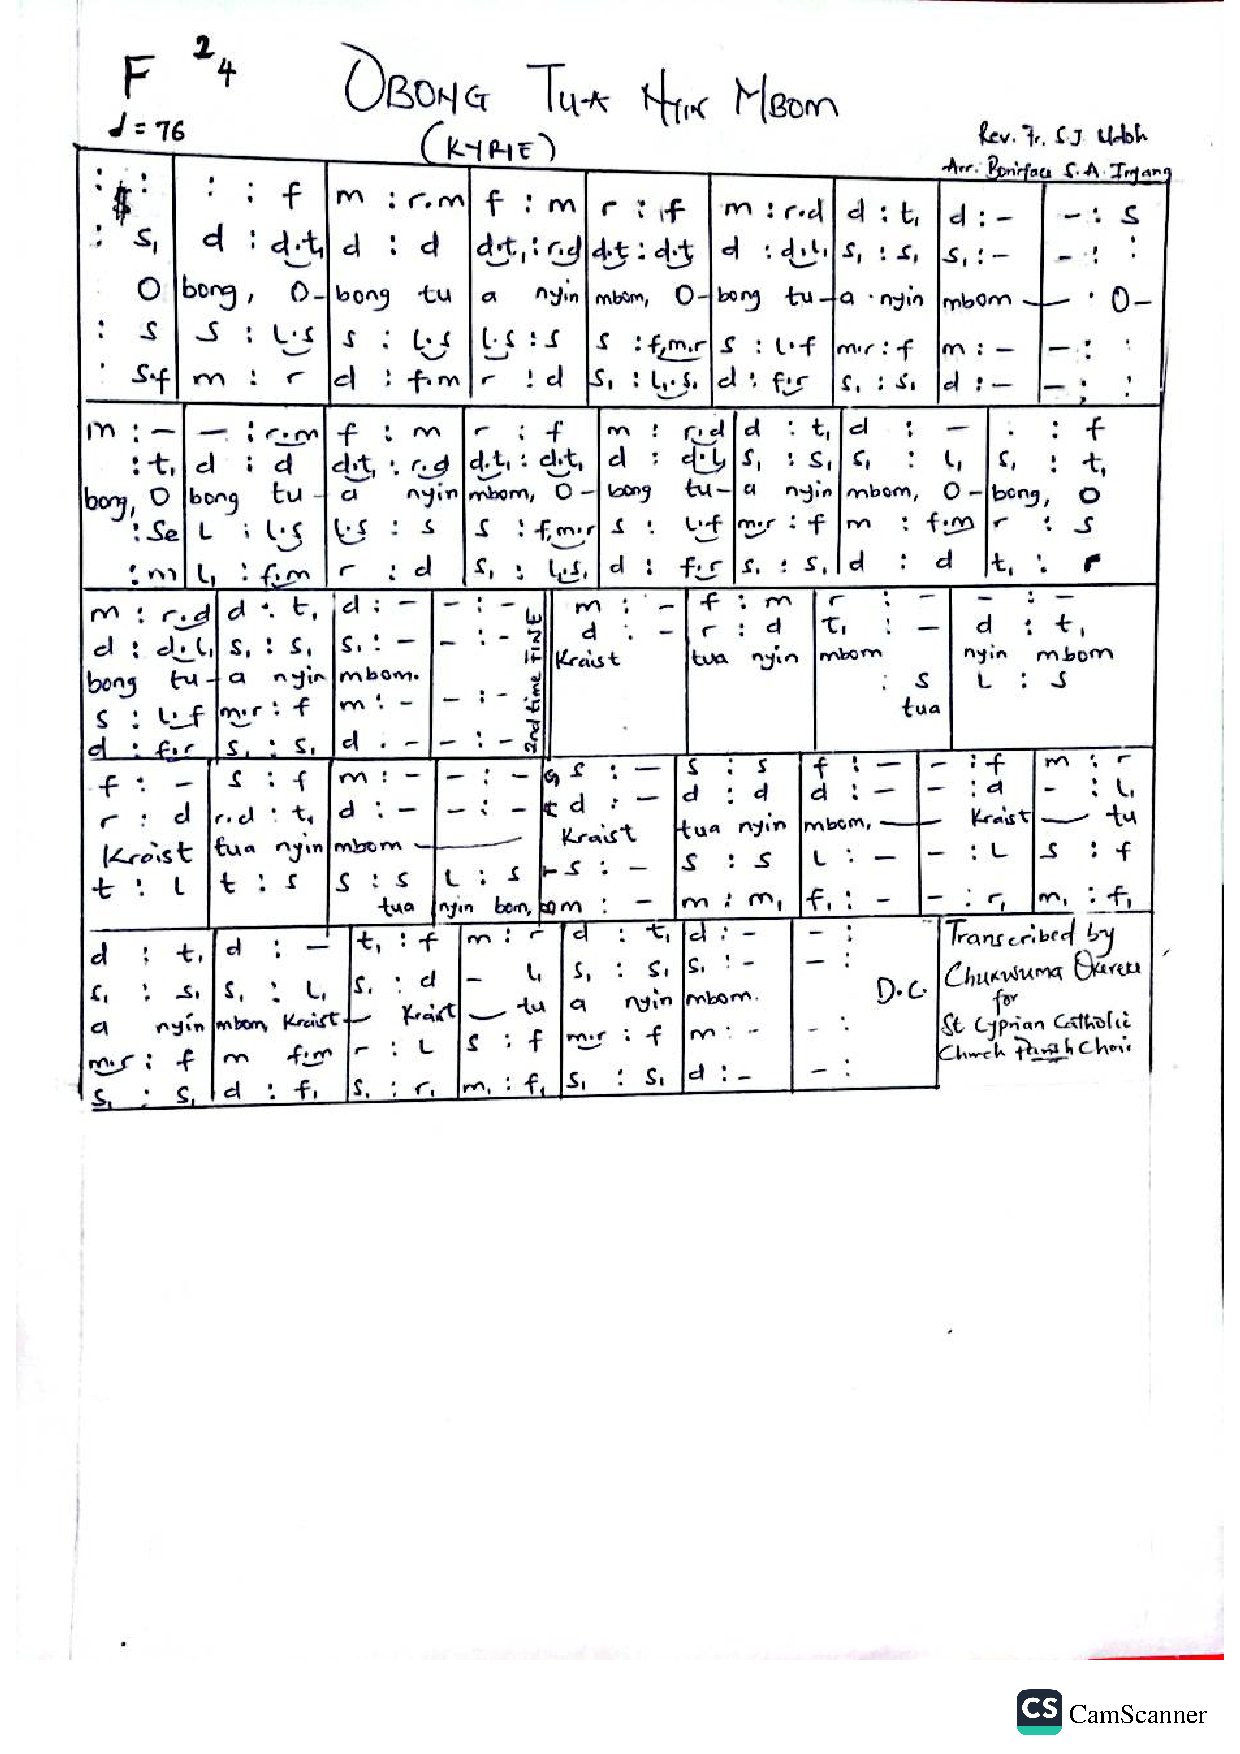 F 2 4 OBONG TUA NYIN MBOM
♩ = 76 (KYRIE)
Rev. Fr. S.J. Udoh
Arr. Boniface S.A. Inyang
: : | : : f | m : r.m | f : m | r : f | m : r.d | d : t, | d : - | - : s
: s, | d : d.t, | d : d | d.t, : r.d | d.t : d.t | d : d.l, | s, : s, | s, : - | - : :
O | bong, O- | bong tu | a nyin | mbom, O- | bong tu- | a nyin | mbom | O-
: s | s : l.s | s : l.s | l.s : s | s : f,m.r | s : l.f | m.r : f | m : - | - : :
: s.f | m : r | d : f.m | r : d | s, : l,.s, | d : f.r | s, : s, | d : - | - : :
m : - | - : r.m | f : m | r : f | m : r.d | d : t, | d : - | . : f
: t, | d : d | d.t, : r.d | d.t, : d.t, | d : d.l, | s, : s, | s, : l, | s, : t,
bong, O | bong tu- | a nyin | mbom, O- | bong tu- | a nyin | mbom, O- | bong, O
: se | l : l.s | l.s : s | s : f,m.r | s : l.f | m.r : f | m : f.m | r : s
: m | l, : f.m | r : d | s, : l,.s, | d : f.r | s, : s, | d : d | t, : r
m : r.d | d : t, | d : - | - : - | m : - | f : m | r : - | - : -
d : d.l, | s, : s, | s, : - | - : - | d : - | r : d | t, : - | d : t,
bong tu- | a nyin | mbom. | 2nd time FINE | Kraist | tua nyin | mbom | nyin mbom
s : l.f | m.r : f | m : - | - : - | : s | l : s
tua
d : f.r | s, : s, | d . - | - : -
f : - | s : f | m : - | - : - | s : - | s : s | f : - | - : f | m : r
r : d | r.d : t, | d : - | - : - | d : - | d : d | d : - | - : d | - : l,
Kraist | tua nyin | mbom | Kraist | tua nyin | mbom, | Kraist | tu
t : l | t : s | s : s | l : s | s : - | s : s | l : - | - : l | s : f
tua | nyin bom, | m : - | m : m, | f, : - | - : r, | m, : f,
d : t, | d : - | t, : f | m : r | d : t, | d : - | - :
s, : s, | s, : l, | s, : d | - l, | s, : s, | s, : - | - :
a nyin | mbom, Kraist | Kraist | tu | a nyin | mbom. | D.C.
m.r : f | m f.m | r : l | s : f | m.r : f | m : - | - :
s, : s, | d : f, | s, : r, | m, : f, | s, : s, | d : - | - :
Transcribed by
Chukwuma Okereke
for
St Cyprian Catholic
Church Choir
CS CamScanner